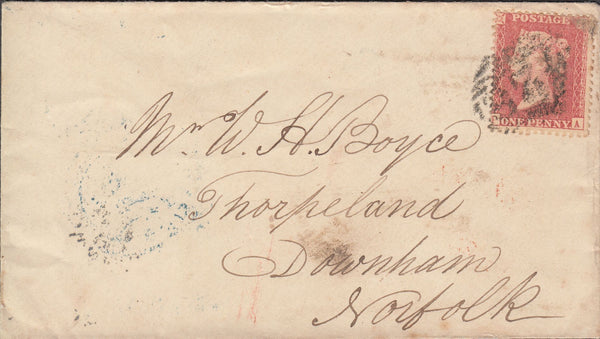 POSTAGE
ONE PENNY A
Mr W. H. Boyce
Thorpeland
Downham
Norfolk